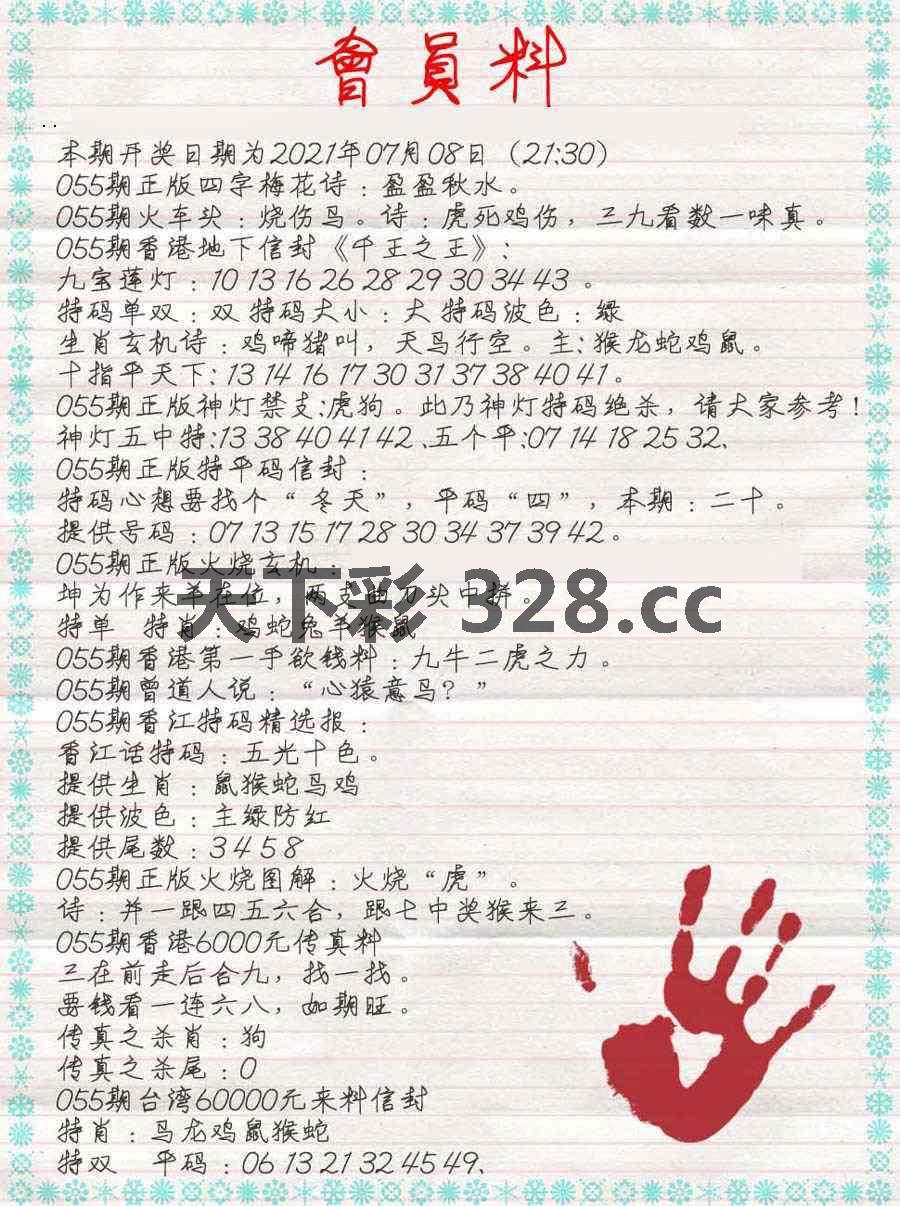 會員料
..
本期开奖日期为2021年07月08日（21:30）
055期正版四字梅花诗：盈盈秋水。
055期火车头：烧伤鸟。诗：虎死鸡伤，三九看数一味真。
055期香港地下信封《千王之王》:
九宝莲灯：10 13 16 26 28 29 30 34 43 。
特码单双：双 特码大小：大 特码波色：绿
生肖玄机诗：鸡啼猪叫，天鸟行空。主:猴龙蛇鸡鼠。
十指平天下:13 14 16 17 30 31 37 38 40 41。
055期正版神灯禁支:虎狗。此乃神灯特码绝杀，请大家参考！
神灯五中特:13 38 40 41 42 、五个平:07 14 18 25 32、
055期正版特平码信封：
特码心想要找个“冬天”，平码“四”，本期：二十。
提供号码：07 13 15 17 28 30 34 37 39 42。
055期正版火烧玄机：
坤为作来羊在位，两支曲刀头中拼。
天下彩 328.cc
特单 特肖：鸡蛇兔羊猴鼠
055期香港第一手欲钱料：九牛二虎之力。
055期曾道人说：“心猿意马？”
055期香江特码精选报：
香江话特码：五光十色。
提供生肖：鼠猴蛇马鸡
提供波色：主绿防红
提供尾数：3 4 5 8
055期正版火烧图解：火烧“虎”。
诗：并一跟四五六合，跟七中奖猴来三。
055期香港6000元传真料
三在前走后合九，找一找。
要钱看一连六八，如期旺。
传真之杀肖：狗
传真之杀尾：0
055期台湾60000元来料信封
特肖：马龙鸡鼠猴蛇
特双 平码：06 13 21 32 45 49、